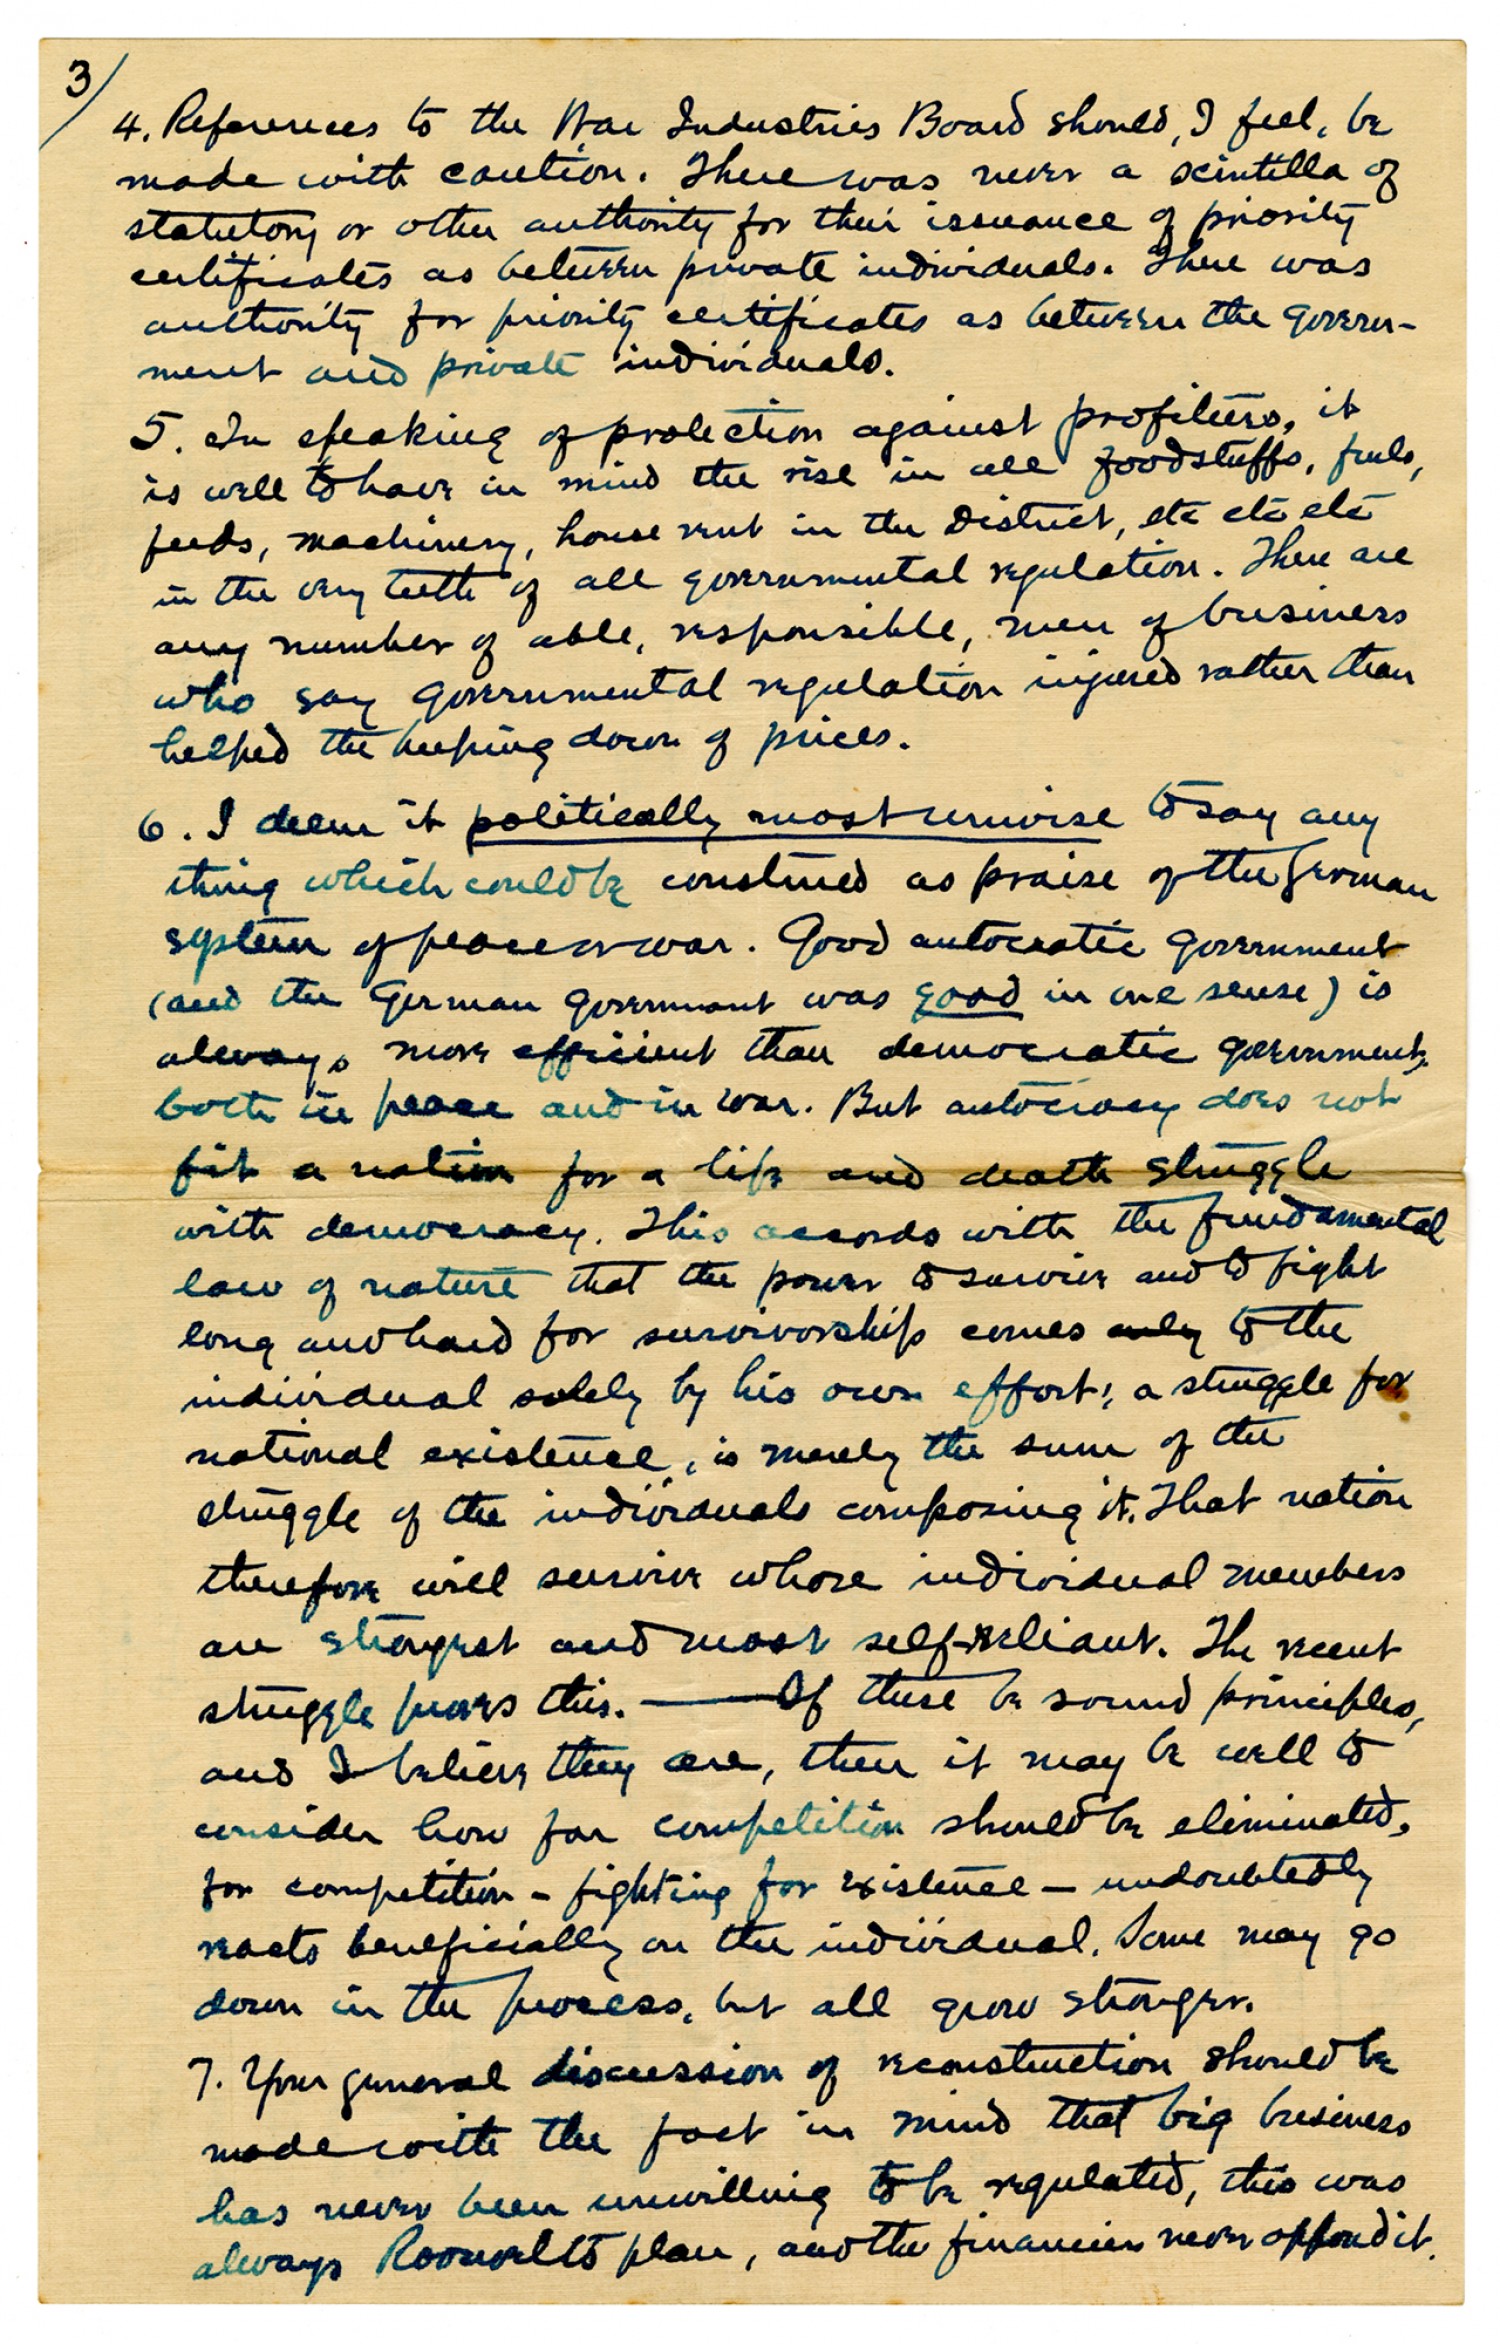 3/
4. References to the War Industries Board should, I feel, be
made with caution. There was never a scintilla of
statutory or other authority for their issuance of priority
certificates as between private individuals. There was
authority for priority certificates as between the govern-
ment and private individuals.
5. In speaking of protection against profiteers, it
is well to have in mind the rise in all foodstuffs, fuels,
feeds, machinery, house rent in the District, etc etc etc
in the very teeth of all governmental regulation. There are
any number of able, responsible, men of business
who say governmental regulation injured rather than
helped the keeping down of prices.
6. I deem it politically most unwise to say any
thing which could be construed as praise of the German
system of peace or war. Good autocratic government
(and the German government was good in one sense) is
always more efficient than democratic government,
both in peace and in war. But autocracy does not
fit a nation for a life and death struggle
with democracy. This accords with the fundamental
law of nature that the power to survive and to fight
long and hard for survivorship comes only to the
individual solely by his own effort; a struggle for
national existence, is merely the sum of the
struggle of the individuals composing it. That nation
therefore will survive whose individual members
are strongest and most self-reliant. The recent
struggle proves this. — If these be sound principles,
and I believe they are, then it may be well to
consider how far competition should be eliminated,
for competition – fighting for existence – undoubtedly
reacts beneficially on the individual. Some may go
down in the process, but all grow stronger.
7. Your general discussion of reconstruction should be
made with the fact in mind that big business
has never been unwilling to be regulated, this was
always Roosevelts plan, and the financiers never opposed it.